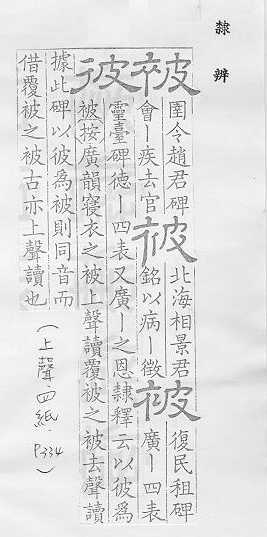 隸辨
被
圉令趙君碑
會丨疾去官
被
北海相景君
銘以病丨徵
被
復民租碑
廣丨四表
彼
靈臺碑德丨四表又廣丨之恩隸釋云以彼為
被按廣韻寢衣之被上聲讀覆被之被去聲讀
據此碑以彼為被則同音而
借覆被之被古亦上聲讀也
(上聲.四紙. P.334)